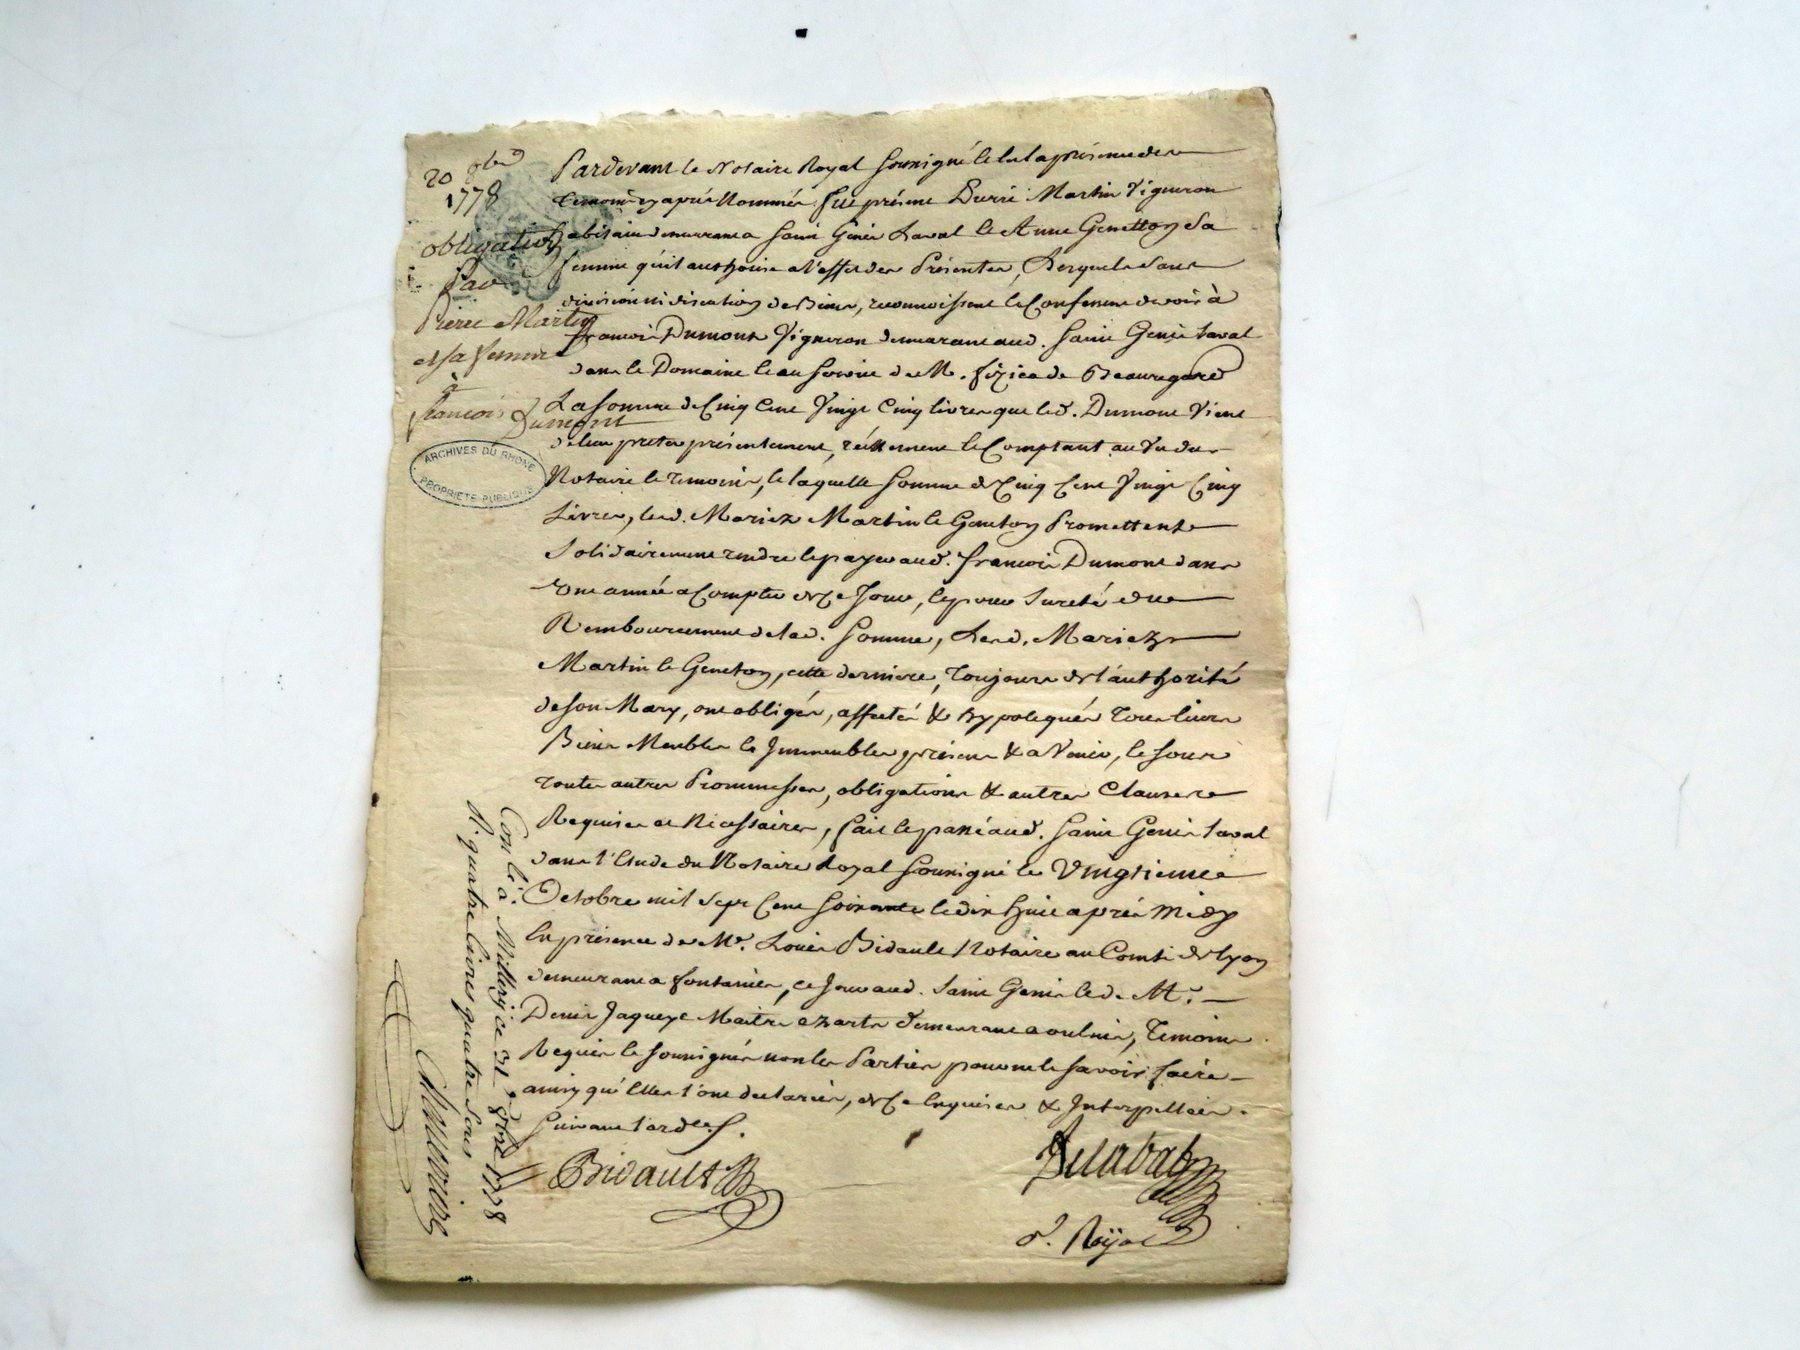 20 8bre
1778
obligation
par
Pierre Martin
et sa femme
à
francois Dumont
ARCHIVES DU RHONE
PROPRIETE PUBLIQUE
Pardevant le Notaire Royal Soussigné et en la présence des
temoins cy après Nommés, fut présent Pierre Martin Vigneron
habitant demeurant a Saint Genis Laval et Anne Genetton sa
femme qu'il authorise a l'effet des Présentes, Lesquels sans
division ni discution de Biens, reconnoissent et Confessent devoir à
francois Dumont Vigneron demeurant aud. Saint Genis Laval
dans le Domaine et au service de M. de Beauregard
La somme de Cinq Cent Vingt Cinq livres que led. Dumont Vient
de leur preter présentement, réellement et Comptant au Vu du
Notaire et Temoins, et laquelle somme de Cinq Cent Vingt Cinq
Livres, lesd. Mariez Martin et Geneton Promettent
Solidairement rendre et payer aud. francois Dumont dans
Une année a Compter de Ce Jour, et pour Sureté du
Remboursement de lad. Somme, Lesd. Mariez
Martin et Geneton, cette derniere, Toujours de l'authorité
de son Mary, ont obligés, affectés & hypotequés Tous leurs
Biens Meubles et Immeubles présens & a Venir, et sous
toutes autres Prommesses, obligations & autres Clauses
Requises et Nécessaires, fait et passé aud. Saint Genis Laval
dans l'Etude du Notaire Royal Soussigné le Vingtieme
Octobre mil Sept Cent Soixante et dix huit après Midy
En présence de Me. Louis Bidault Notaire au Comté de Lyon
demeurant a fontanès, ce Jour aud. Saint Genis et de Me.
Denis Jaqueye Maitre ez arts demeurant a oulins, Temoins
Requis et soussignés non les Parties pour ne le savoir faire
ainsy qu'Elles l'ont declarées, de Ce Enquises & Interpellées
Suivant l'ord.ce
Bidault
Delabat
n. Royal
Con lé à Millery ce 31e 8bre 1778
R. quatre livres quatre sous